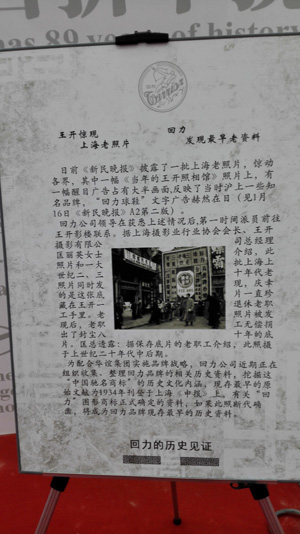 has 89 years of history
Since 1927
王开惊现 回力
上海老照片 发现最早老资料
日前《新民晚报》披露了一批上海老照片，惊动
各界，其中一幅《当年的王开照相馆》照片上，有
一幅醒目广告占有大半画面，反映了当时沪上一些知
名品牌，“回力球鞋”文字广告赫然在目（见1月
16日《新民晚报》A2第二版）。
回力公司领导在获悉上述情况后，第一时间派员前往
王开影楼联系，据上海摄影业行业协会会长、王开
摄影有限公 司总经理
匡丽英女士 介绍，此
照片和一大 批上海上
世纪二、三 十年代老
照片同时发 现，庆幸
的是这张底 片一直珍
藏在王开一 退休老职
工手里。老 照片被发
现后，老职 工无偿捐
出了封尘八 十年的底
片。匡总透露：据保存底片的老职工介绍，此照摄
于上世纪二十年代中后期。
为配合华谊集团实施品牌战略，回力公司近期正在
组织收集、整理回力品牌的相关历史资料，挖掘这
“中国驰名商标”的历史文化内涵，现存最早的原
始文献为1934年刊登于上海《申报》上，有关“回
力”图形商标正式确定的资料，如果此照断代确
凿，将成为回力品牌现存最早的历史资料。
回力的历史见证